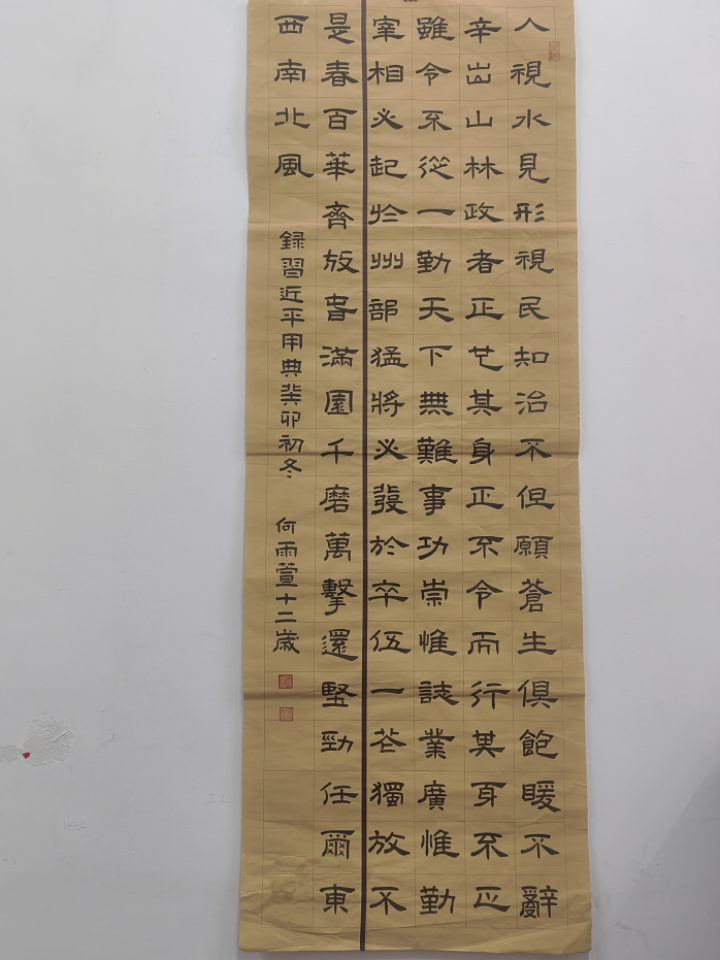 人視水見形視民知治不但願蒼生俱飽暖不辭
辛出山林政者正也其身正不令而行其身不正
雖令不從一勤天下無難事功崇惟誌業廣惟勤
宰相必起於州部猛將必發於卒伍一花獨放不
是春百華齊放春滿園千磨萬擊還堅勁任爾東
西南北風
錄習近平用典癸卯初冬 何雨萱十二歲